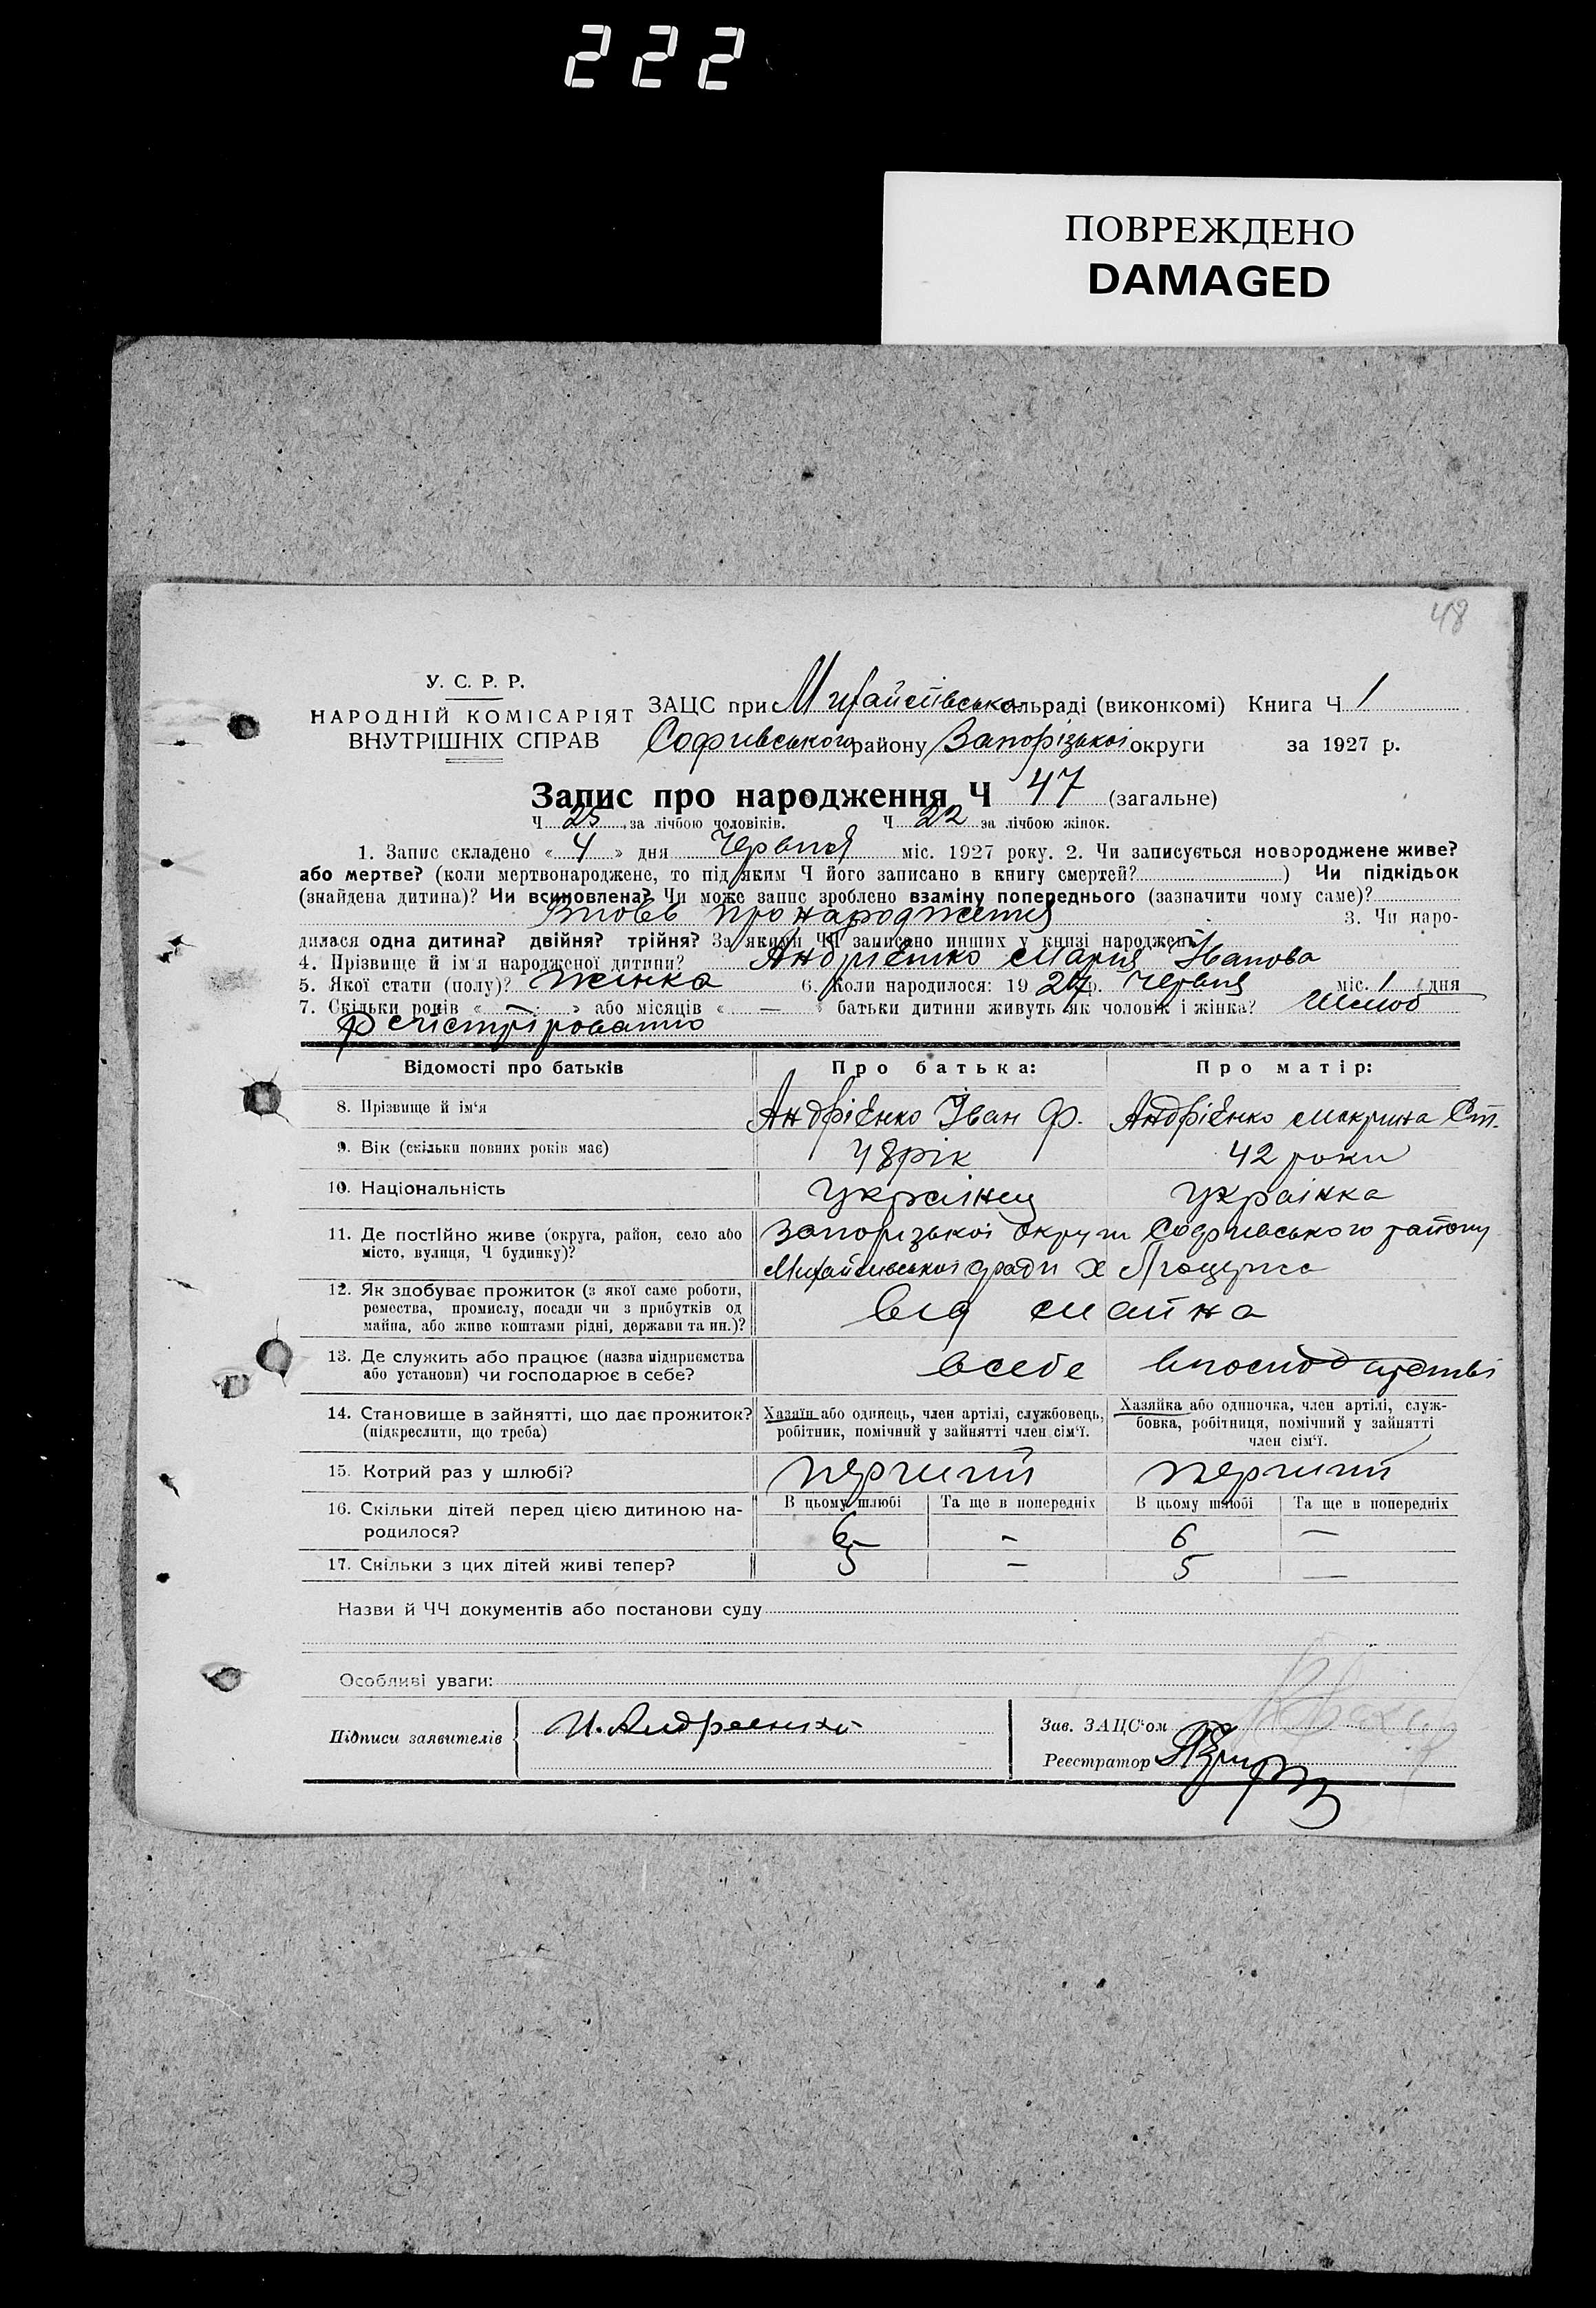 222
ПОВРЕЖДЕНО
DAMAGED
48
У. С. Р. Р.
НАРОДНІЙ КОМІСАРІЯТ
ВНУТРІШНІХ СПРАВ
ЗАЦС при Михайлівській сільраді (виконкомі) Книга Ч 1
Софиівського району Запорізької округи за 1927 р.
Запис про народження Ч 47 (загальне)
Ч 25 за лічбою чоловіків. Ч 22 за лічбою жінок.
1. Запис складено « 4 » дня Червня міс. 1927 року. 2. Чи записується новороджене живе?
або мертве? (коли мертвонароджене, то під яким Ч його записано в книгу смертей? ) Чи підкідьок
(знайдена дитина)? Чи всиновлена? Чи може запис зроблено взаміну попереднього (зазначити чому саме)?
вновь про народження 3. Чи наро-
дилася одна дитина? двійня? трійня? За якими ЧЧ записано инших у книзі народжень?
4. Прізвище й ім'я народженої дитини? Андріенко Мария Іванова
5. Якої стати (полу)? жінка 6. Коли народилося: 1927 р. Червня міс. 1 дня
7. Скільки років « — » або місяців « — » батьки дитини живуть як чоловік і жінка? шлюб
регістріровано
Відомості про батьків Про батька: Про матір:
8. Прізвище й ім'я Андріенко Іван Ф. Андріенко Макрина Ст.
9. Вік (скільки повних років має) 48 рік 42 роки
10. Національність Українец Українка
11. Де постійно живе (округа, район, село або Запорізькоі округи Софиівського району
місто, вулиця, Ч будинку)? Михайлівськоі с/ради х
12. Як здобуває прожиток (з якої саме роботи,
ремества, промислу, посади чи з прибутків од від майна
майна, або живе коштами рідні, держави та ин.)?
13. Де служить або працює (назва підприємства всебе в господарстві
або установи) чи господарює в себе?
14. Становище в зайнятті, що дає прожиток? Хазяїн або одинець, член артілі, службовець, Хазяйка або одиночка, член артілі, служ-
(підкреслити, що треба) робітник, помічний у зайнятті член сім'ї. бовка, робітниця, помічний у зайнятті
член сім'ї.
15. Котрий раз у шлюбі? перший перший
16. Скільки дітей перед цією дитиною на- В цьому шлюбі Та ще в попередніх В цьому шлюбі Та ще в попередніх
родилося? 6 – 6 —
17. Скільки з цих дітей живі тепер? 5 – 5 —
Назви й ЧЧ документів або постанови суду
Особливі уваги:
Підписи заявителів И. Андреенко
Зав. ЗАЦС'ом
Реєстратор